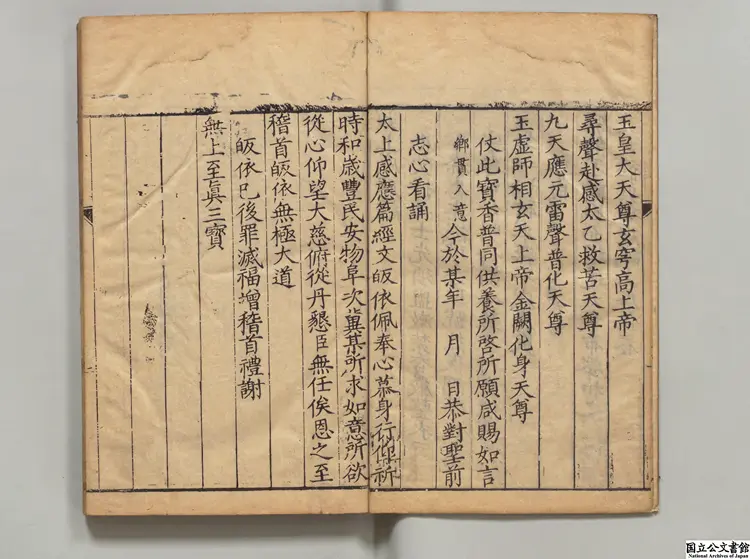 玉皇大天尊玄穹高上帝
尋聲赴感太乙救苦天尊
九天應元雷聲普化天尊
玉虛師相玄天上帝金闕化身天尊
仗此寶香普同供養所啓所願咸賜如言
鄉貫入意今於某年 月 日恭對聖前
志心看誦
太上感應篇經文皈依佩奉心慕身行保祈
時和歲豐民安物阜次冀某所求如意所欲
從心仰望大慈俯從丹懇臣無任俟恩之至
稽首皈依無極大道
皈依已後罪滅福增稽首禮謝
無上至眞三寶
国立公文書館
National Archives of Japan